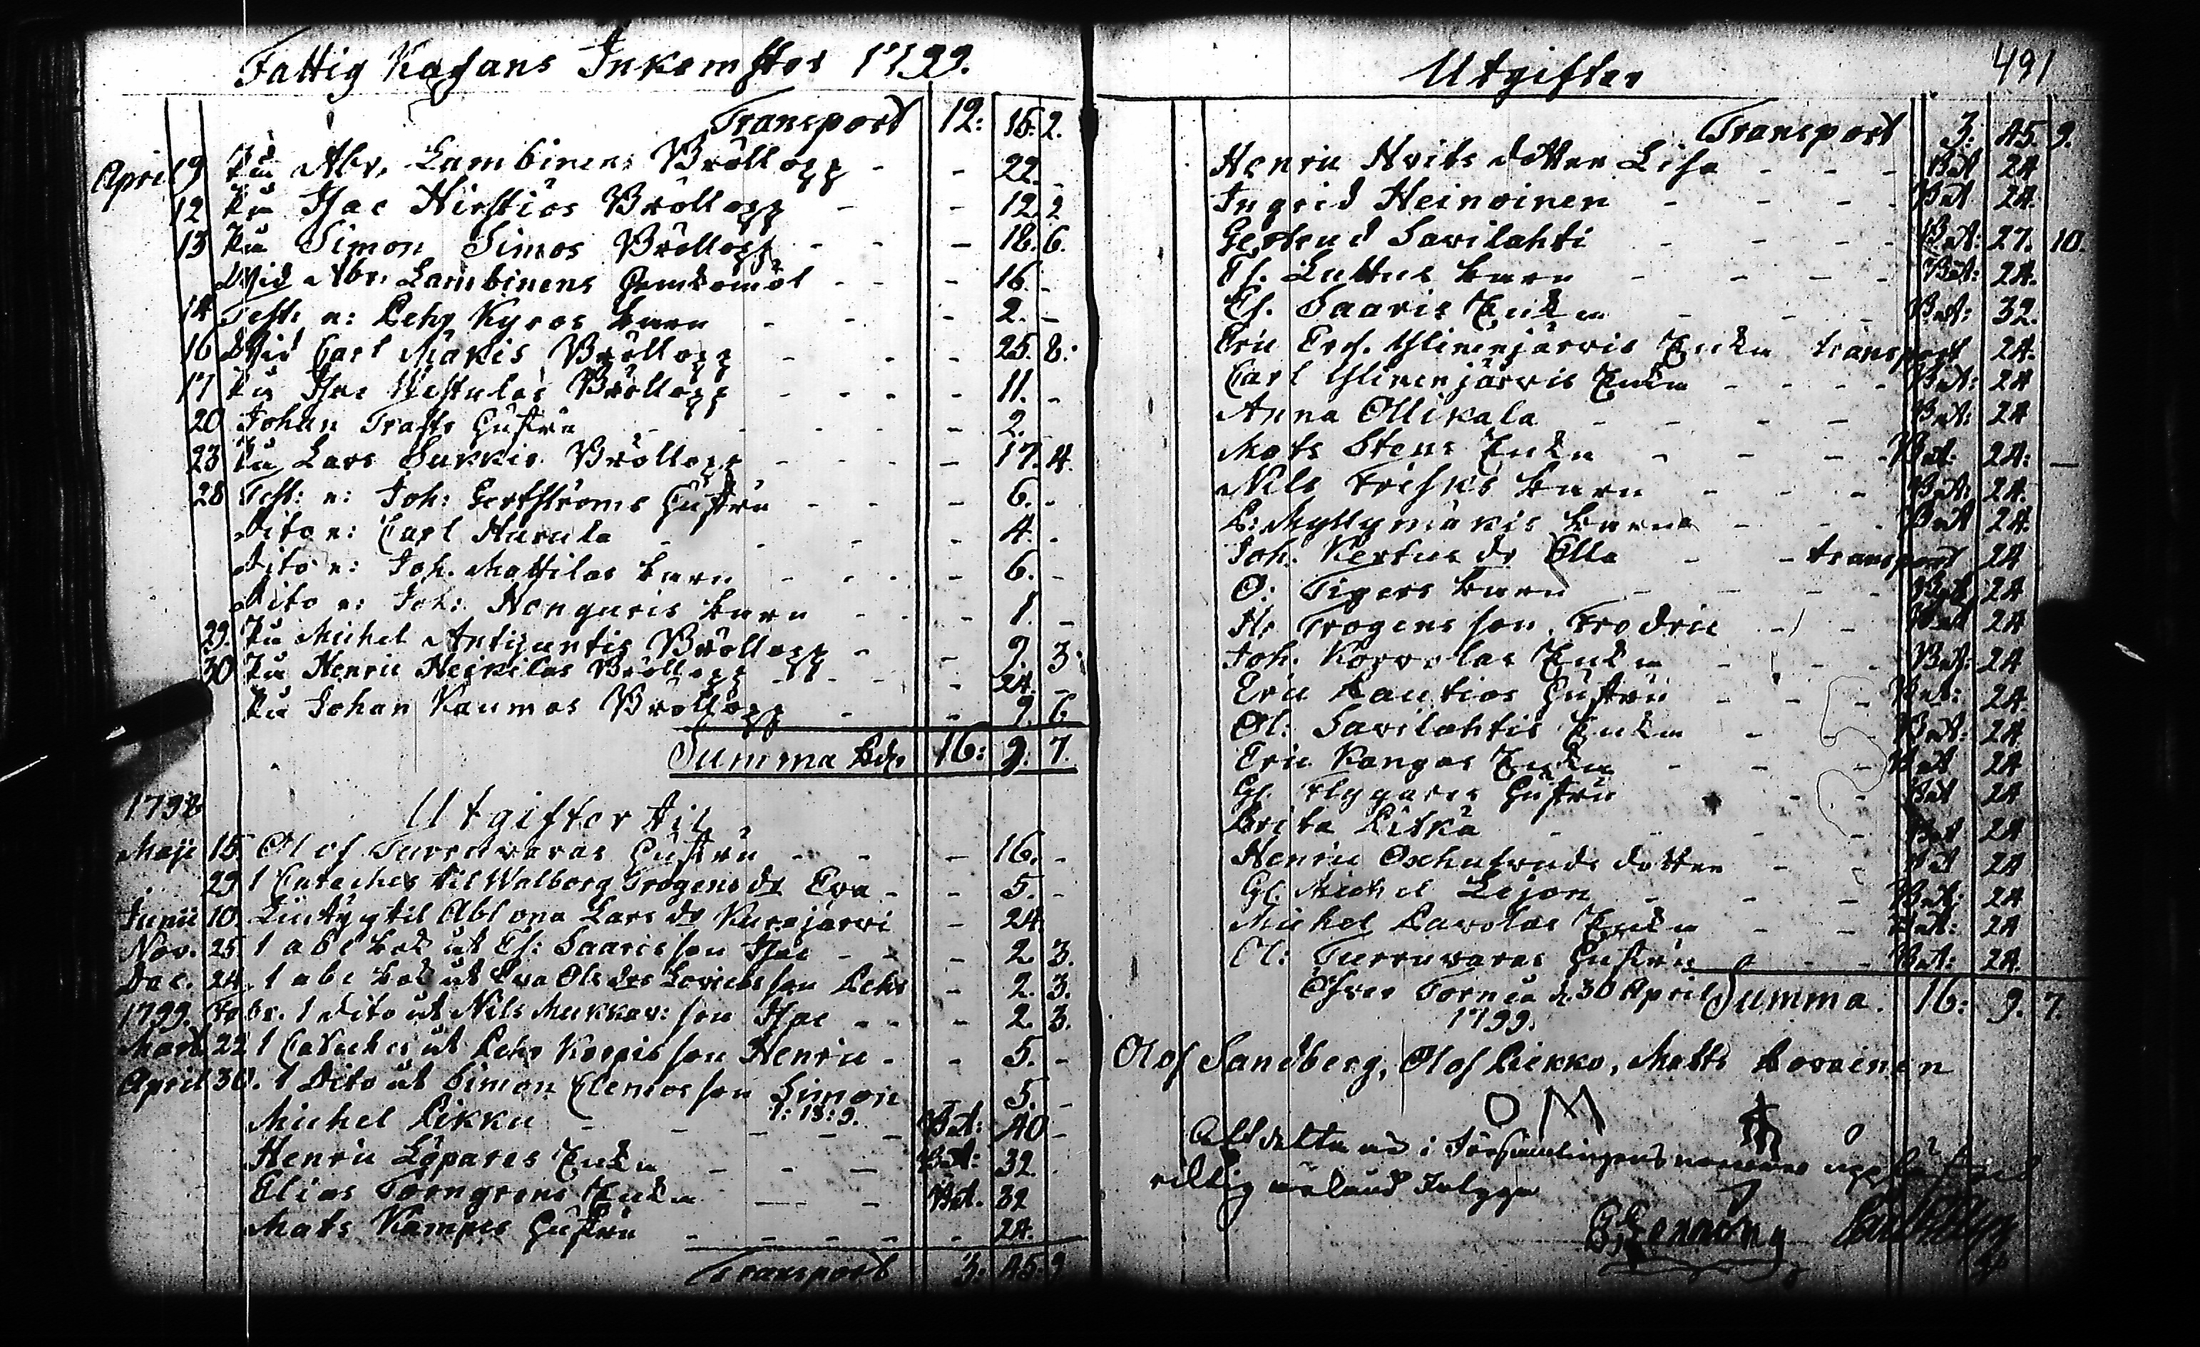 Fattig Kassans Inkomster 1799.
Transport 12: 16. 2.
April 9 På Abr. Lambinens Bröllopp - - 22. -
12 På Isac Hirstios Bröllopp - - 12. 2
13 På Simon Simos Bröllopp - - - 18. 6.
Wid Abr. Lambinens - - - 16. -
14 Test: a: Pehr Kyros barn - - - 2. -
16 Wid Carl Mäkis Bröllopp - - - 25. 8.
17 På Isac Bröllopp - - - - 11. -
20 Johan Trasts Hustru - - - 2.
23 På Lars Sukkis Bröllopp - - - - 17. 4.
28 Test: a: Joh: Hustru - - - 6. -
Dito a: Carl Hurula - - - 4. -
Dito a: Joh. Mattilas barn - - - - 6. -
Dito a: Joh: barn - - - 1. -
29. På Michel Bröllopp - - 9. 3.
30 På Henric Heikilas Bröllopp - - - 24. -
På Johan Kaumas Bröllopp - - 9. 6.
Summa 16: 9. 7.
1798 Utgifter til
Maji 15. Olof Turruvaras Hustru - - - 16. -
29 1 Cateches til Walborg Grogens dr Eva - - 5. -
Junii 10. til Lars dr Kurajärvi - 24.
Nov. 25 1 abc bok åt Es: Saaris son Isac - - - 2 3.
Dec. 24. 1 abc bok åt Eva Ols drs son Pehr - 2. 3.
1799. Febr. 1 dito åt Nils son Isac - - - 2. 3.
Mart. 22 1 Cateches åt Pehr Korpis son Henric - - 5. -
April 30. 1 Dito åt Simon Clemos son Simon 5. -
1: 13: 9.
Michel Pikku - - - - - Bet: 40 -
Henric Löpares Enka - - - Bet: 32
Elias Torngrens Enka - - - Bet. 32
Mats Kampes Hustru - - - - - 24.
Transport 3: 45. 9
Utgifter 491
Transport 3: 45. 9.
Henric Hvits dotter Lisa - - - Bet 24
Ingrid Heinoinen - - - - Bet 24.
Gertrud Savilahti - - - - Bet: 27. 10.
barn - - - - Bet: 24.
Es. Saaris Enka - - - Bet: 32.
Eric Ylinenjärvis Enka transport 24.
Carl Ylinenjärvis Enka - - - - Bet: 24
Anna Ollikala - - - - Bet: 24
Mats Stens Enka - - - - Bet. 24. -
Nils Frisks barn - - - Bet: 24.
P: Myllymäkis barn - - - Bet 24.
Joh. dr Ella - - transport 24
O: Tigers barn - - - - Bet 24
H: Trogens son Fredric - - - Bet 24
Joh. Korvolas Enka - - - Bet: 24
Eric Rautios Hustru - - Bet: 24.
Ol: Savilahtis Enka - - Bet: 24.
Eric Kangas Enka - - - Bet 24
Gl. Hustru - - Bet 24
Brita Pitkä - - - - Bet 24
Henric dotter - - Bet 24
Gl. Michel Lejon - - - Bet: 24
Michel Lavolas Enka - - - Bet: 24
Ol: Turruvaras Hustru - - - Bet: 24.
Öfver Torneå d. 30 April Summa. 16: 9. 7.
1799.
Olof Sandberg, Olof Pekko, Matts
O M
Att detta är i Församlingens närvaro
riktig